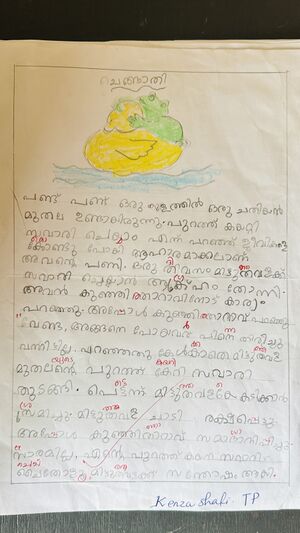 ചെങ്ങാതി
പണ്ട് പണ്ട് ഒരു കുളത്തിൽ ഒരു ചതിയൻ
മുതല ഉണ്ടായിരുന്നു. പുറത്ത് കയറ്റി
സവാരി ചെയ്യാം എന്ന് പറഞ്ഞ് ജീവികളെ
കൊണ്ടു പോയി ആഹാരമാക്കലാണ്
അവന്റെ പണി. ഒരു ദിവസം മിട്ടുതവളക്ക്
സവാരി ചെയ്യാൻ ആഗ്രഹം തോന്നി.
അവൻ കുഞ്ഞിത്താറാവിനോട് കാര്യം
പറഞ്ഞു. അപ്പോൾ കുഞ്ഞിത്താറാവ് പറഞ്ഞു
"വേണ്ട, അങ്ങനെ പോയവർ പിന്നെ തിരിച്ചു
വന്നിട്ടില്ല. പറഞ്ഞതു കേൾക്കാതെ മിട്ടുതവള
മുതലന്റെ പുറത്ത് കേറി സവാരി
തുടങ്ങി. പെട്ടെന്ന് മിട്ടുതവളയെ കടിക്കാൻ
ശ്രമിച്ചു. മിട്ടുതവള ചാടി രക്ഷപ്പെട്ടു.
അപ്പോൾ കുഞ്ഞിത്താറാവ് സമാധാനിപ്പിച്ചു.
"സാരമില്ല, എന്റെ പുറത്ത് കയറി സവാരി
ചെയ്തോളൂ മിട്ടുതവളക്ക് സന്തോഷം ആയി.
Kenza shafi. TP